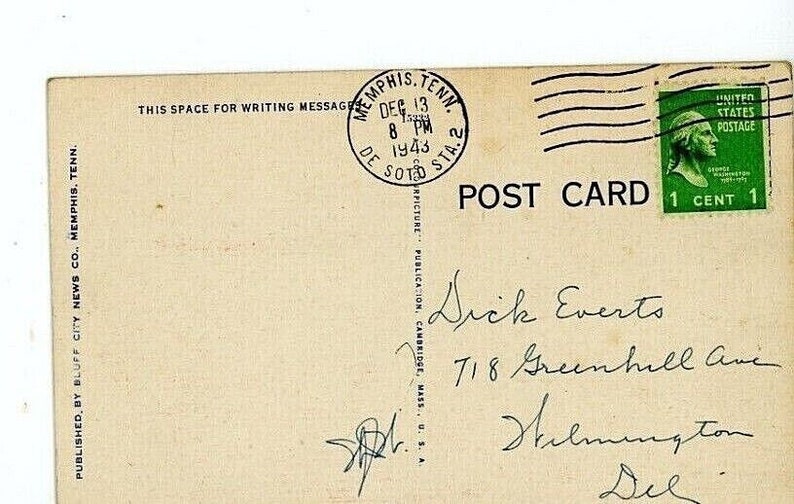 THIS SPACE FOR WRITING MESSAGES
MEMPHIS, TENN.
DEC 13
8 PM
1943
DE SOTO STA. 2
UNITED
STATES
POSTAGE
GEORGE
WASHINGTON
1 CENT 1
POST CARD
Dick Everts
718 Greenhill Ave
Wilmington
Del
PUBLISHED, BY BLUFF CITY NEWS CO., MEMPHIS, TENN.
PICTURE" PUBLICATION, CAMBRIDGE, MASS., U. S. A.